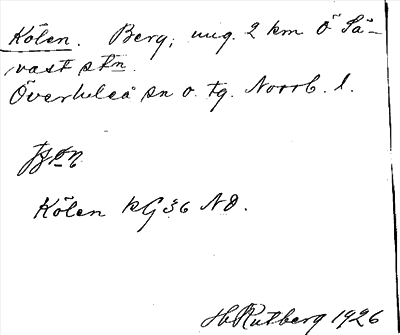 Kölen. Berg, ung. 2 km Ö Sä-
vast stn.
Överluleå sn o. tg. Norrb. l.
Kölen kG 36 NO.
H Rutberg 1926